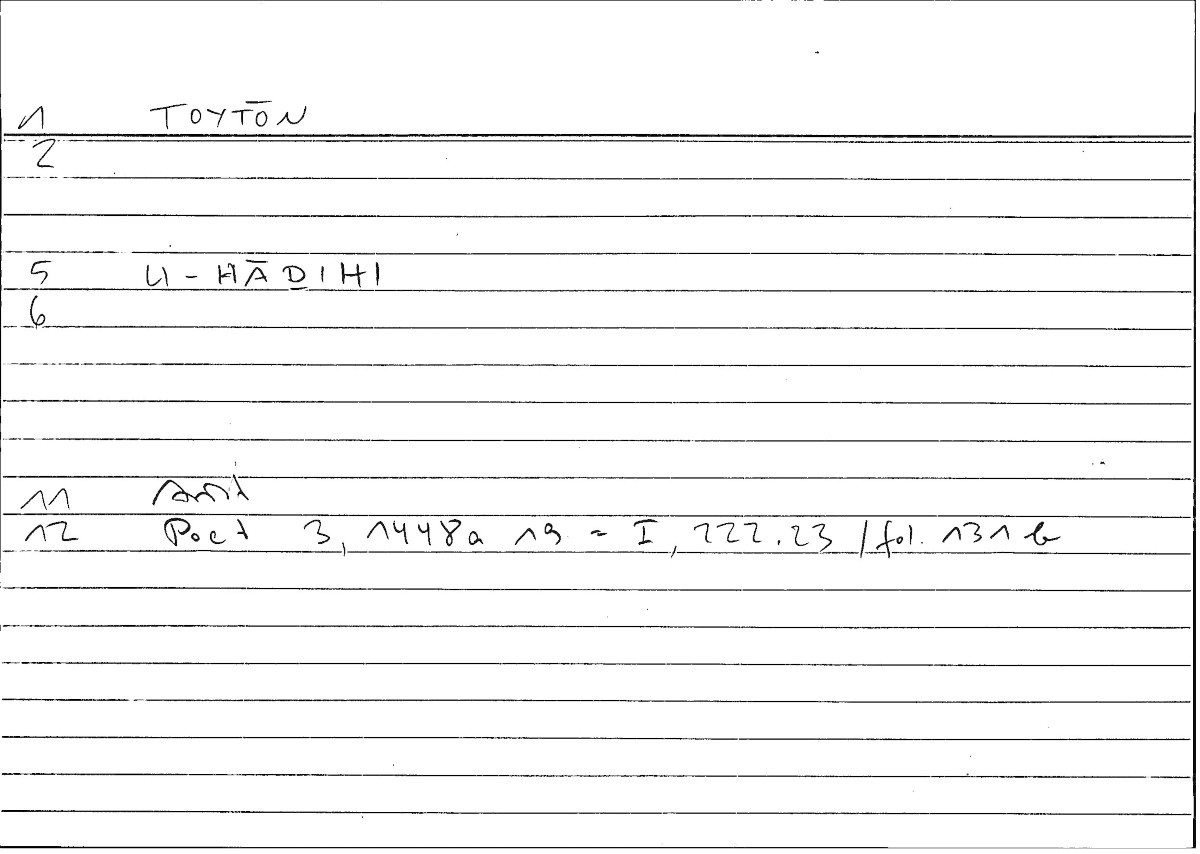 1 TOYTŌN
2
5 LI-HĀḎIHI
6
11 Arist
12 Poet 3, 1448a 19 = I, 222.23 / fol. 131 b